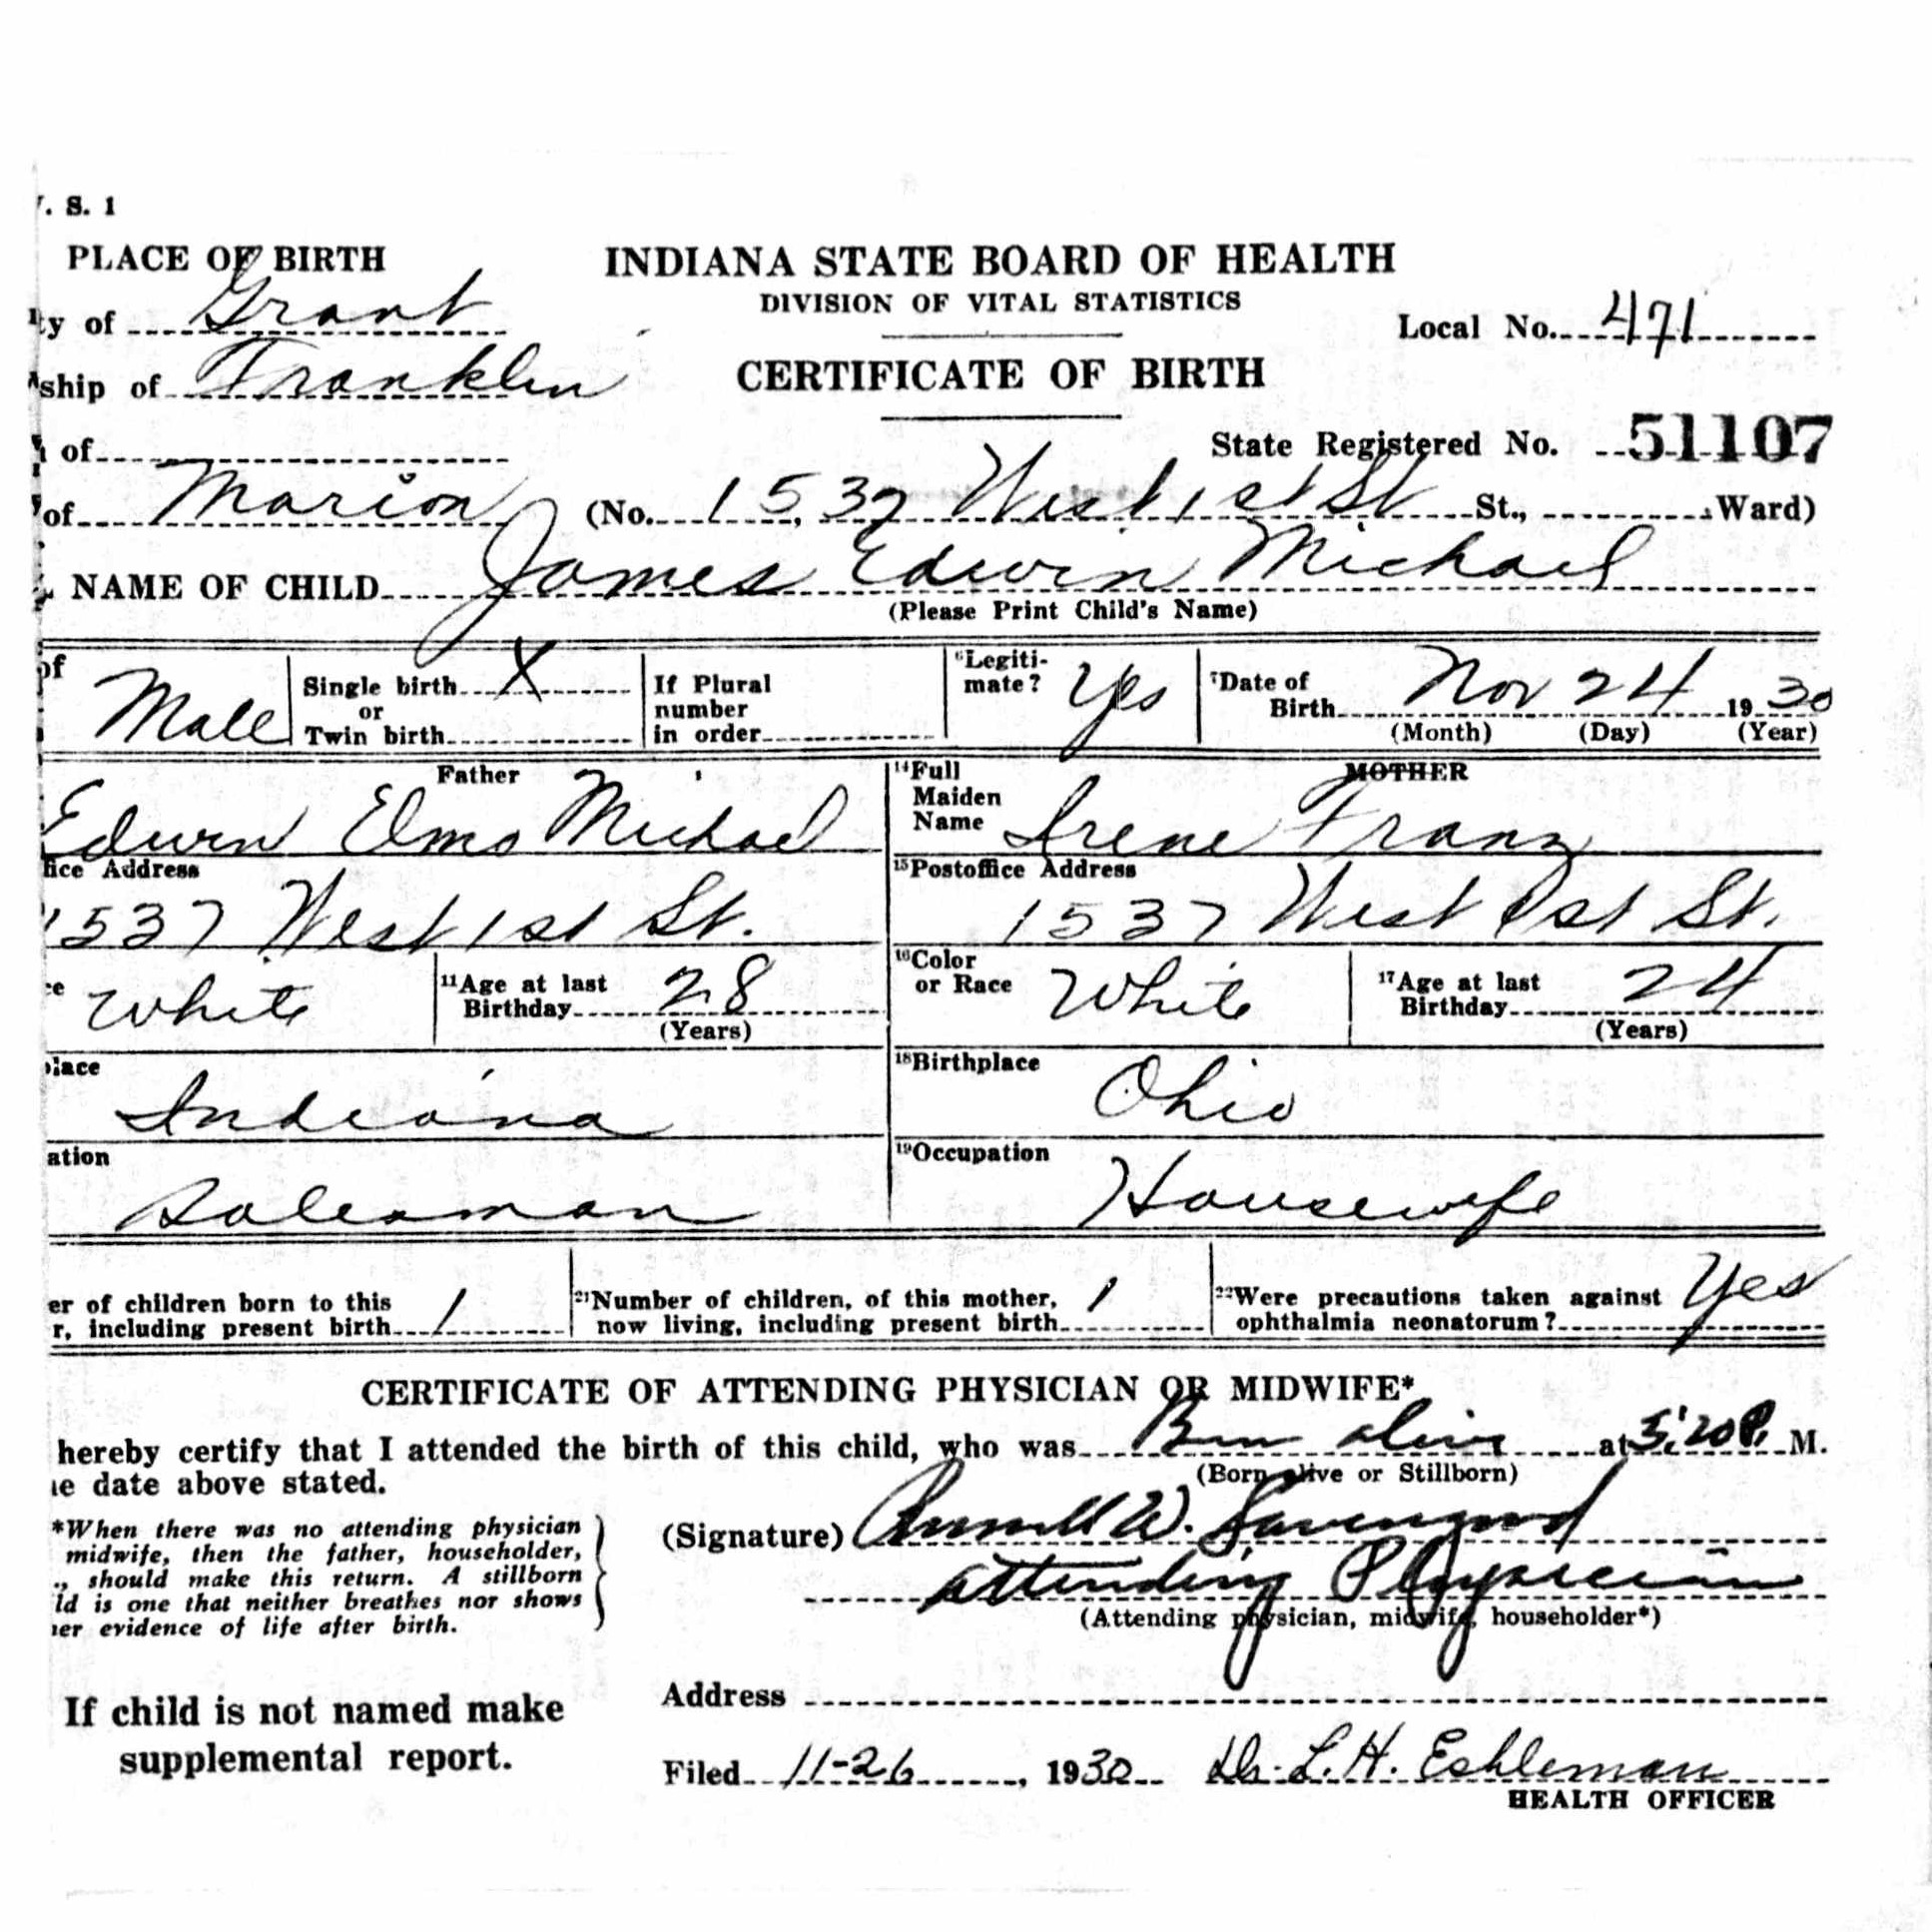 . S. 1
PLACE OF BIRTH
INDIANA STATE BOARD OF HEALTH
DIVISION OF VITAL STATISTICS
ty of Grant
Local No. 471
ship of Franklin
CERTIFICATE OF BIRTH
of
State Registered No. 51107
of Marion (No. 1537 West 1st St St., Ward)
NAME OF CHILD James Edwin Michael
(Please Print Child's Name)
of Male
Single birth X
or
Twin birth
If Plural
number
in order
6Legiti-
mate? Yes
7Date of
Birth Nov 24 1930
(Month) (Day) (Year)
Father
Edwin Elmo Michael
14Full
Maiden
Name
MOTHER
Irene Franz
fice Address
1537 West 1st St.
15Postoffice Address
1537 West 1st St.
ce White
11Age at last
Birthday 28
(Years)
16Color
or Race White
17Age at last
Birthday 24
(Years)
place
Indiana
18Birthplace
Ohio
ation
Salesman
19Occupation
Housewife
er of children born to this
r, including present birth 1
21Number of children, of this mother,
now living, including present birth 1
22Were precautions taken against
ophthalmia neonatorum? Yes
CERTIFICATE OF ATTENDING PHYSICIAN OR MIDWIFE*
hereby certify that I attended the birth of this child, who was Born alive at 5:20 P. M.
(Born alive or Stillborn)
e date above stated.
*When there was no attending physician
midwife, then the father, householder,
., should make this return. A stillborn
ld is one that neither breathes nor shows
er evidence of life after birth.
(Signature) W.
attending Physician
(Attending physician, midwife, householder*)
If child is not named make
supplemental report.
Address
Filed 11-26, 1930 Dr. L. H. Eshleman
HEALTH OFFICER